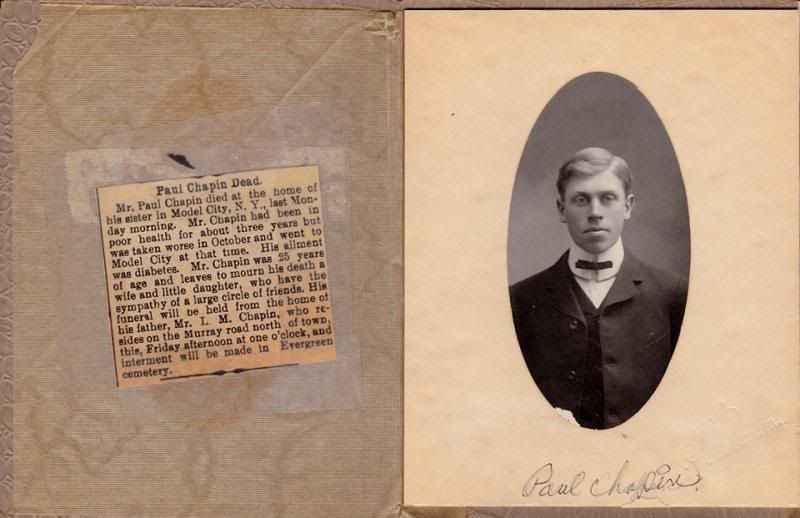 Paul Chapin Dead.
Mr. Paul Chapin died at the home of
his sister in Model City, N. Y., last Mon-
day morning. Mr. Chapin had been in
poor health for about three years but
was taken worse in October and went to
Model City at that time. His ailment
was diabetes. Mr. Chapin was 25 years
of age and leaves to mourn his death a
wife and little daughter, who have the
sympathy of a large circle of friends. His
funeral will be held from the home of
his father, Mr. L. M. Chapin, who re-
sides on the Murray road north of town,
this, Friday afternoon at one o'clock, and
interment will be made in Evergreen
cemetery.
Paul Chapin.